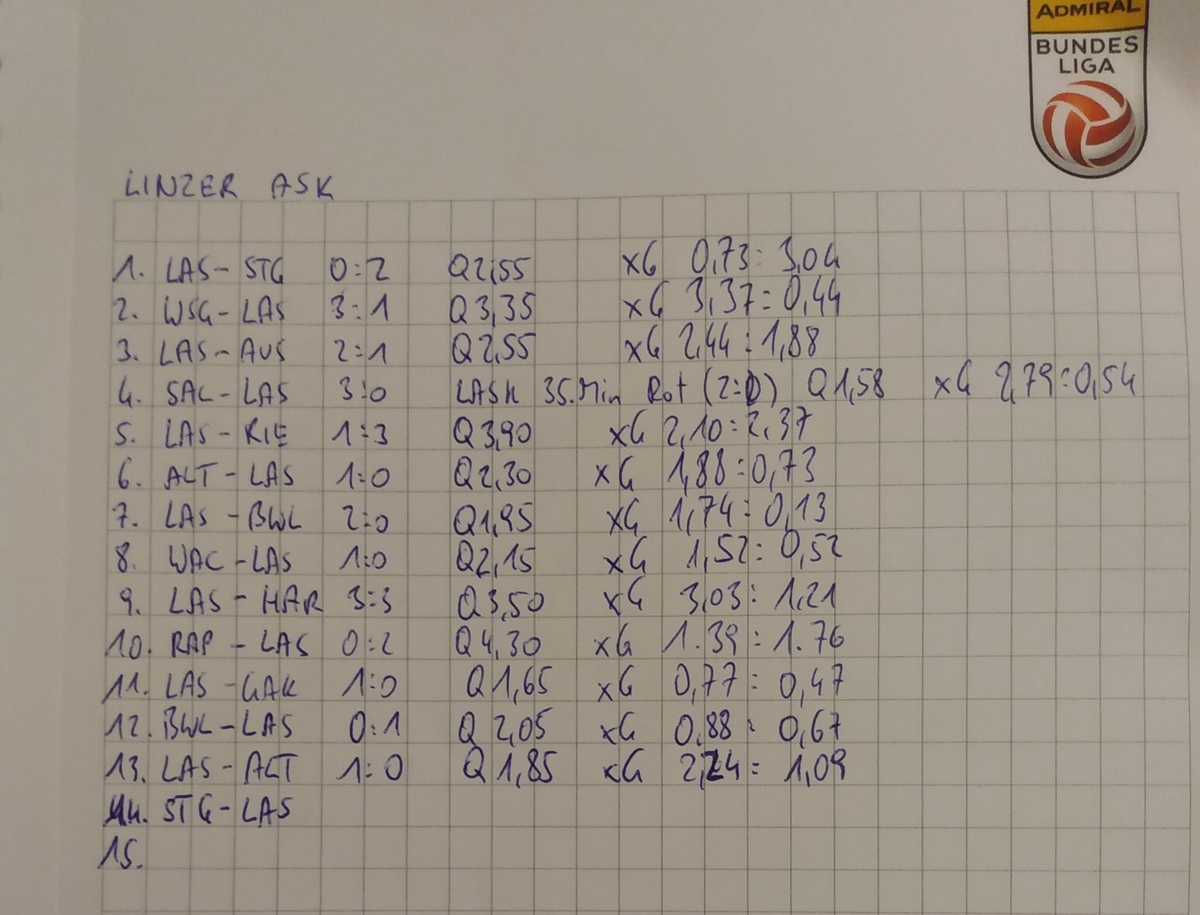 ADMIRAL
BUNDES
LIGA
LINZER ASK
1. LAS-STG 0:2 Q2,55 xG 0,73:3,04
2. WSG-LAS 3:1 Q3,35 xG 3,37:0,44
3. LAS-AUS 2:1 Q2,55 xG 2,44:1,88
4. SAL-LAS 3:0 LASK 35.Min Rot (2:0) Q1,58 xG 2,79:0,54
5. LAS-RIE 1:3 Q3,90 xG 2,10:2,37
6. ALT-LAS 1:0 Q2,30 xG 1,88:0,73
7. LAS-BWL 2:0 Q1,95 xG 1,74:0,13
8. WAC-LAS 1:0 Q2,15 xG 1,52:0,52
9. LAS-HAR 3:3 Q3,50 xG 3,03:1,21
10. RAP-LAS 0:2 Q4,30 xG 1.39:1.76
11. LAS-GAK 1:0 Q1,65 xG 0,77:0,47
12. BWL-LAS 0:1 Q2,05 xG 0,88:0,67
13. LAS-ALT 1:0 Q1,85 xG 2,24:1,09
14. STG-LAS
15.